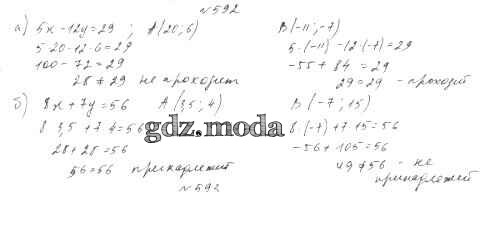 №592
а) 5x - 12y = 29 ; A(20; 6) B(-11; -7)
5·20 - 12·6 = 29 5·(-11) - 12·(-7) = 29
100 - 72 = 29 -55 + 84 = 29
28 ≠ 29 не проходит 29 = 29 - проходит
б) 8x + 7y = 56 A(3,5; 4) B(-7; 15)
8·3,5 + 7·4 = 56 8·(-7) + 7·15 = 56
gdz.moda
28 + 28 = 56 -56 + 105 = 56
56 = 56 49 ≠ 56 - не
№592